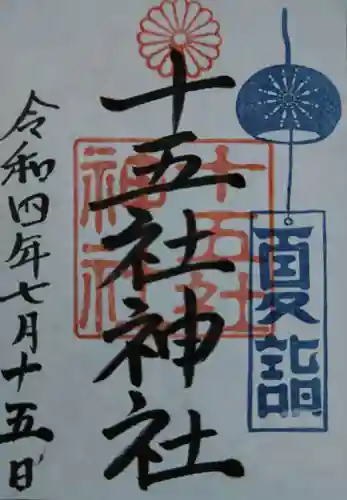 夏詣
十五社神社
十五社神社
令和四年七月十五日